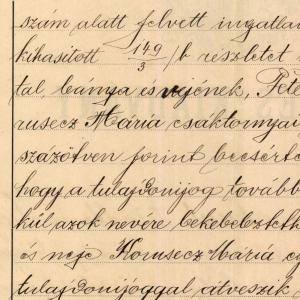 szám alatt felvett ingatlan
kihasított 149/3 /b részletet
tal, bánya és nejének, Péte
rusecz Mária csáktornyai
százötven forint becsért
hogy a tulajdonjog továbbá
kül azok nevére bekebeleztethe
és neje Korusecz Mária
tulajdonjoggal átveszik